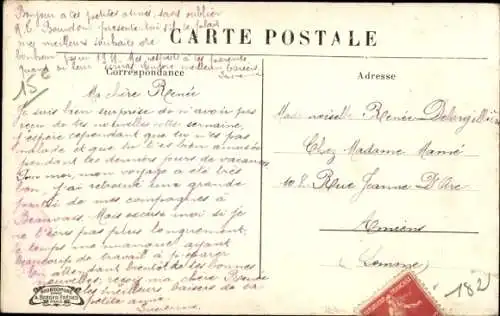 Bonjour a ces petites amies sans oublier
présente lui s'il te plait
mes meilleurs souhaits de
bonheur pour 1911. Mes respects à tes parents
Suzanne
CARTE POSTALE
Correspondance
Adresse
15 c
Ma chère Renée
Je suis bien surprise de n'avoir pas
reçu de tes nouvelles cette semaine,
j'espère cependant que tu n'es pas
malade et que tu t'es bien amusée
pendant les derniers jours de vacances
Pour moi, mon voyage a été très
bon, j'ai retrouvé une grande
partie de mes compagnes à
Beauvais. Mais excuse moi si je
ne t'écris pas plus longuement,
le temps me manque ayant
beaucoup de travail à préparer
En attendant bientôt de tes bonnes
nouvelles, reçois ma chère Renée
les meilleurs baisers de ta
petite amie
Suzanne
Mademoiselle Renée
Chez Madame Mamé
108 Rue Jeanne D'Arc
Amiens
(Somme)
182